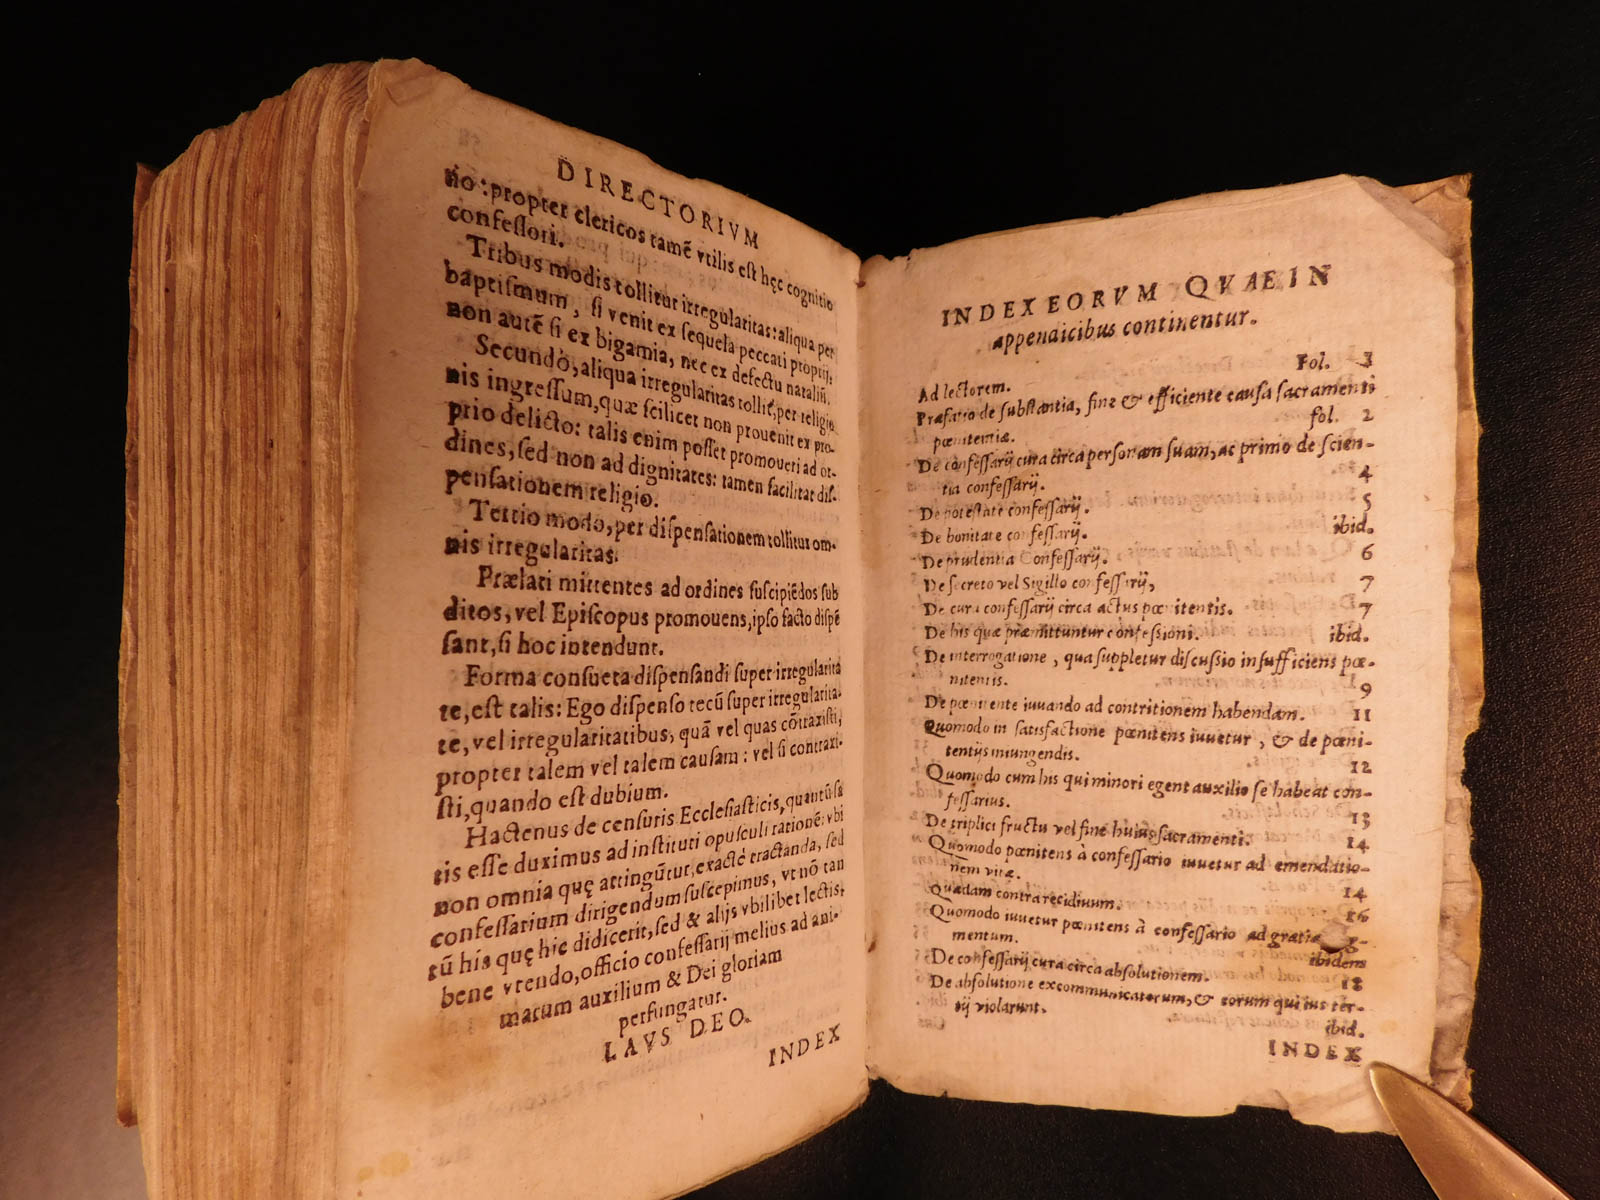 DIRECTORIVM
tio: propter clericos tamē vtilis est hęc cognitio
confessori.
Tribus modis tollitur irregularitas: aliqua per
baptismum, si venit ex sequela peccati proprij:
non autē si ex bigamia, nec ex defectu natalium.
Secundò, aliqua irregularitas tollit, per religio
nis ingressum, quæ scilicet non prouenit ex pro-
prio delicto: talis enim posset promoueri ad or-
dines, sed non ad dignitates: tamen facilitat dis-
pensationem religio.
Tertio modo, per dispensationem tollitur om-
nis irregularitas.
Prælati mittentes ad ordines suscipiēdos sub
ditos, vel Episcopus promouens, ipso facto dispē
sant, si hoc intendunt.
Forma consueta dispensandi super irregularita
te, est talis: Ego dispenso tecū super irregularita-
te, vel irregularitatibus, quā vel quas cōtraxisti,
propter talem vel talem causam: vel si contraxi-
sti, quando est dubium.
Hactenus de censuris Ecclesiasticis, quantū sa
tis esse duximus ad instituti opusculi rationē: vbi
non omnia quę attingūtur, exactè tractanda, sed
confessarium dirigendum suscepimus, vt nō tan
tū his quę hic didicerit, sed & alijs vbilibet lectis,
bene vtendo, officio confessarij melius ad ani-
marum auxilium & Dei gloriam
perfungatur.
LAVS DEO.
INDEX
INDEX EORVM QVAE IN
appendicibus continentur.
Ad lectorem. Fol. 3
Præfatio de substantia, fine & efficiente causa sacramenti
pœnitentiæ. fol. 2
De confessarij cura circa personam suam, ac primo de scien-
tia confessarij. 4
De potestate confessarij. 5
De bonitate confessarij. ibid.
De prudentia Confessarij. 6
De secreto vel Sigillo confessarij, 7
De cura confessarij circa actus pœnitentis. 7
De his quæ præmittuntur confessioni. ibid.
De interrogatione, qua suppletur discussio insufficiens pœ-
nitentis. 9
De pœnitente iuuando ad contritionem habendam. 11
Quomodo in satisfactione pœnitens iuuetur, & de pœni-
tentijs iniungendis. 12
Quomodo cum his qui minori egent auxilio se habeat con-
fessarius. 13
De triplici fructu vel fine huius sacramenti. 14
Quomodo pœnitens à confessario iuuetur ad emendatio-
nem vitæ. 14
Quædam contra recidiuum. 16
Quomodo iuuetur pœnitens à confessario ad gratiæ
mentum. ibidem
De confessarij cura circa absolutionem. 18
De absolutione excommunicatorum, & eorum qui ius ter-
tij violarunt. ibid.
INDEX